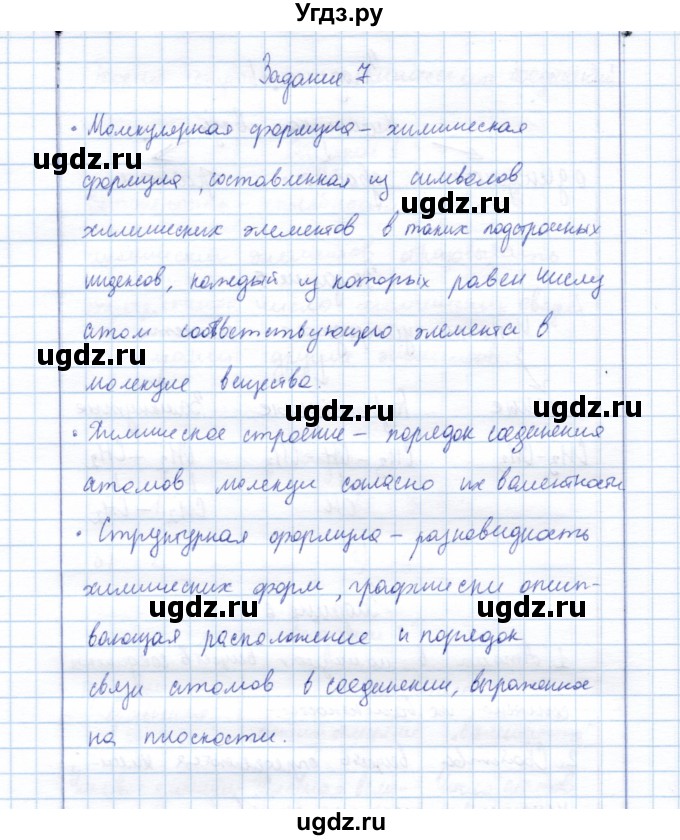 Угдз.ру
Задание 7
• Молекулярная формула – химическая
ugdz.ru
формула, составленная из символов
ugdz.ru
химических элементов в таких подстрочных
индексов, каждый из которых равен числу
атом соответствующего элемента в
ugdz.ru
молекуле вещества.
ugdz.ru
ugdz.ru
• Химическое строение – порядок соединения
атомов молекул согласно их валентности
• Структурная формула – разновидность
химических форм, графически описы-
ugdz.ru
ugdz.ru
вающая расположение и порядок
связи атомов в соединении, выраженное
на плоскости.
ugdz.ru
ugdz.ru